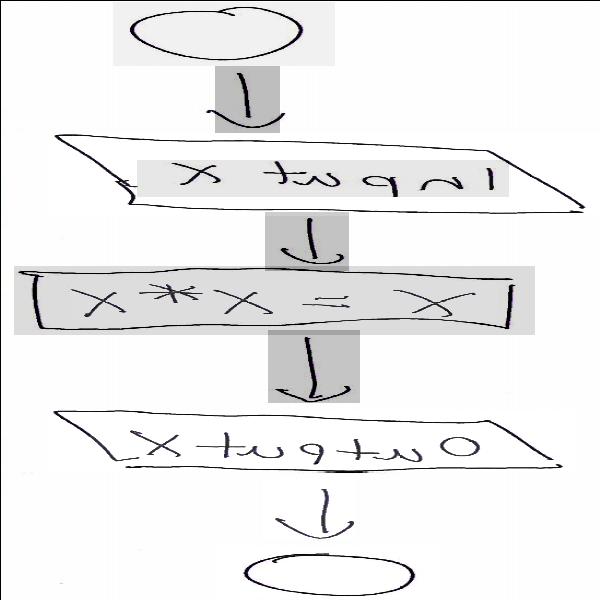 Input X
X = X*X
Output X